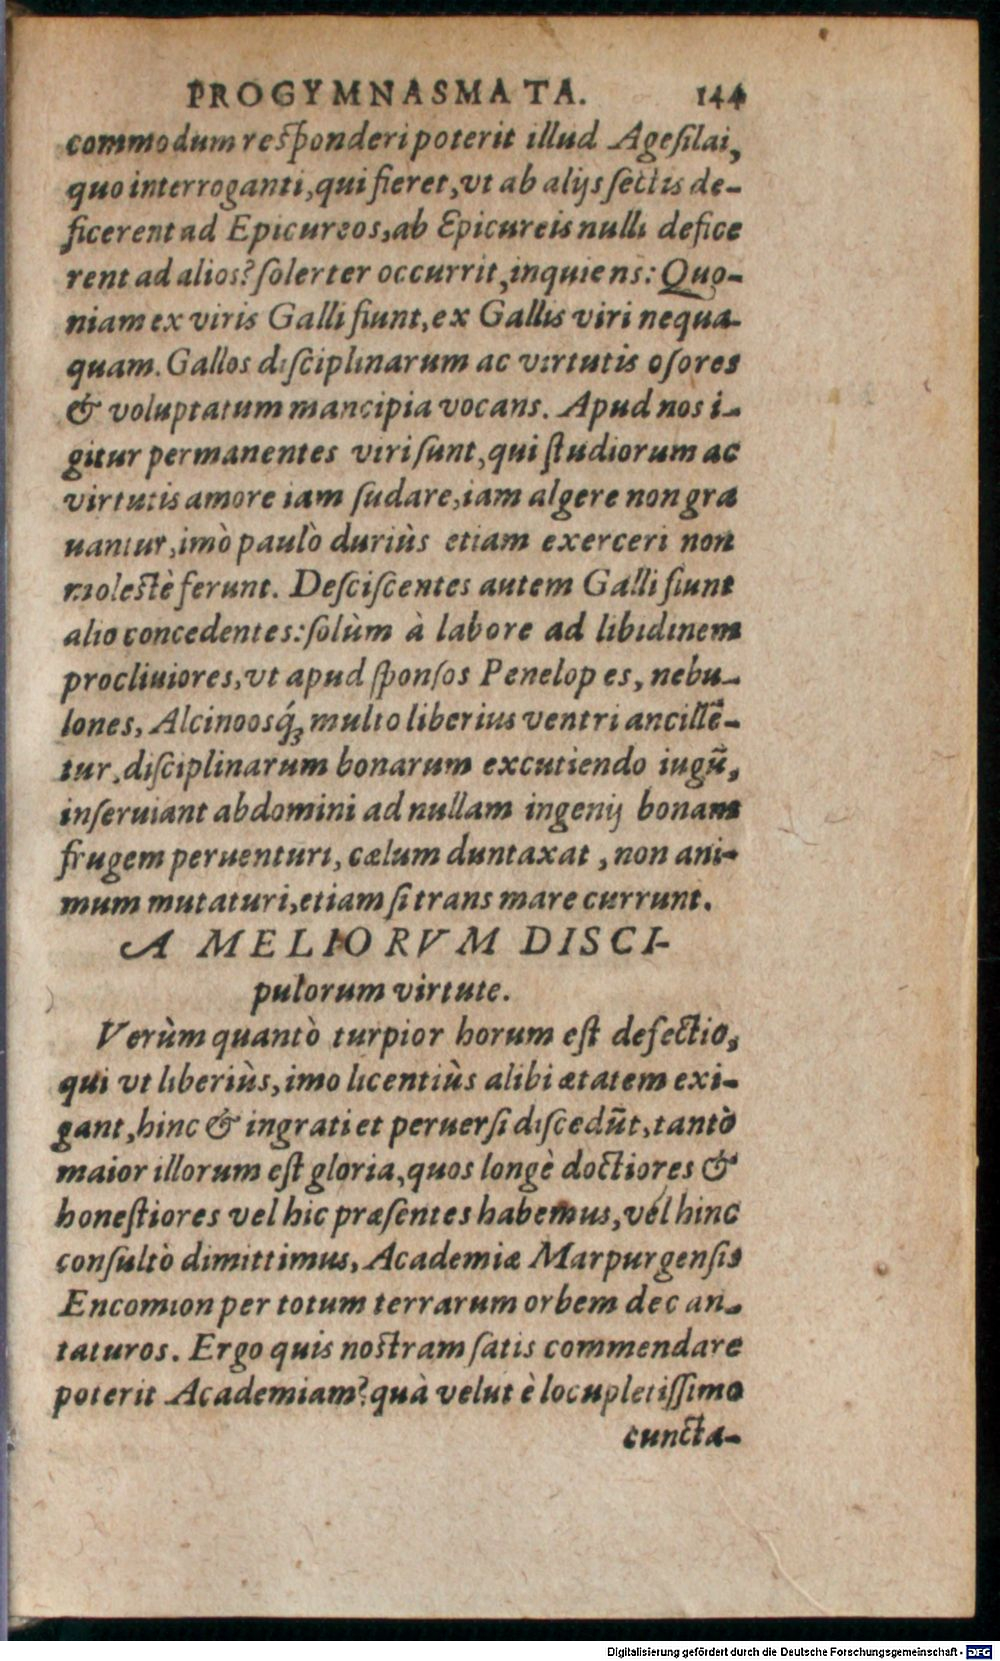 PROGYMNASMATA. 144
commodum responderi poterit illud Agesilai,
quo interroganti, qui fieret, vt ab alijs sectis de-
ficerent ad Epicureos, ab Epicureis nulli defice
rent ad alios? solerter occurrit, inquiens: Quo-
niam ex viris Galli fiunt, ex Gallis viri nequa-
quam. Gallos disciplinarum ac virtutis osores
& voluptatum mancipia vocans. Apud nos i-
gitur permanentes viri sunt, qui studiorum ac
virtutis amore iam sudare, iam algere non gra
uantur, imò paulò duriùs etiam exerceri non
molestè ferunt. Desciscentes autem Galli fiunt
alio concedentes: solùm à labore ad libidinem
procliuiores, vt apud sponsos Penelopes, nebu-
lones, Alcinoosq́; multo liberius ventri ancillē-
tur, disciplinarum bonarum excutiendo iugū,
inseruiant abdomini ad nullam ingenij bonam
frugem peruenturi, cælum duntaxat, non ani-
mum mutaturi, etiam si trans mare currunt.
A MELIORVM DISCI-
pulorum virtute.
Verùm quantò turpior horum est defectio,
qui vt liberiùs, imo licentiùs alibi ætatem exi-
gant, hinc & ingrati et peruersi discedūt, tantò
maior illorum est gloria, quos longè doctiores &
honestiores vel hic præsentes habemus, vel hinc
consultò dimittimus, Academiæ Marpurgensis
Encomion per totum terrarum orbem decan-
taturos. Ergo quis nostram satis commendare
poterit Academiam? quà velut è locupletissimo
cuncta-
Digitalisierung gefördert durch die Deutsche Forschungsgemeinschaft - DFG